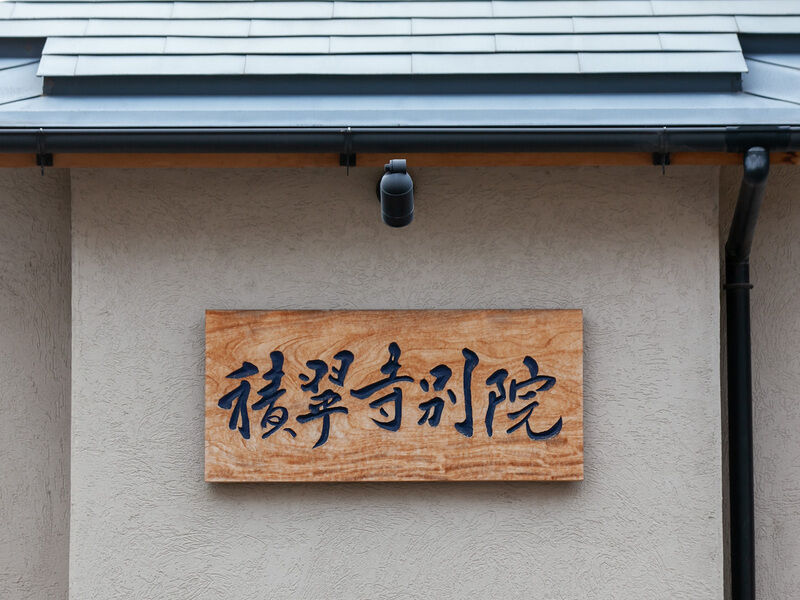 積翠寺別院